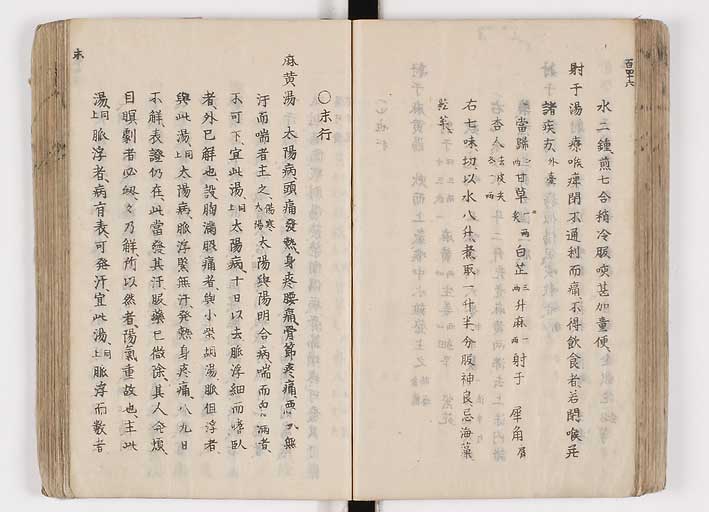 百四十六
水二鍾煎七合稍冷服嗽甚加童便
射干湯療喉痺閉不通利而痛不得飲食者若閉喉并
諸疾方 外臺
當歸 二兩 甘草 一兩 炙 白芷 三兩 升麻 一兩 射干 犀角 屑
杏人 去皮尖 一兩
右七味切以水八升煮取一升半分服神良忌海藻
菘菜
末
〇末行
麻黄湯 太陽病頭痛發熱身疼腰痛骨節疼痛悪風無
汗而喘者主之 傷寒太陽 太陽與陽明合病喘而胸満者
不可下宜此湯 上同 太陽病十日以去脈浮細而嗜臥
者外已解也設胸満脇痛者與小柴胡湯脈但浮者
與此湯 上同 太陽病脈浮緊無汗発熱身疼痛八九日
不解表證仍在此當發其汗服藥已微除其人発煩
目瞑劇者必衂々乃解所以然者陽氣重故也主此
湯 上同 脈浮者病有表可発汗宜此湯 上同 脈浮而數者